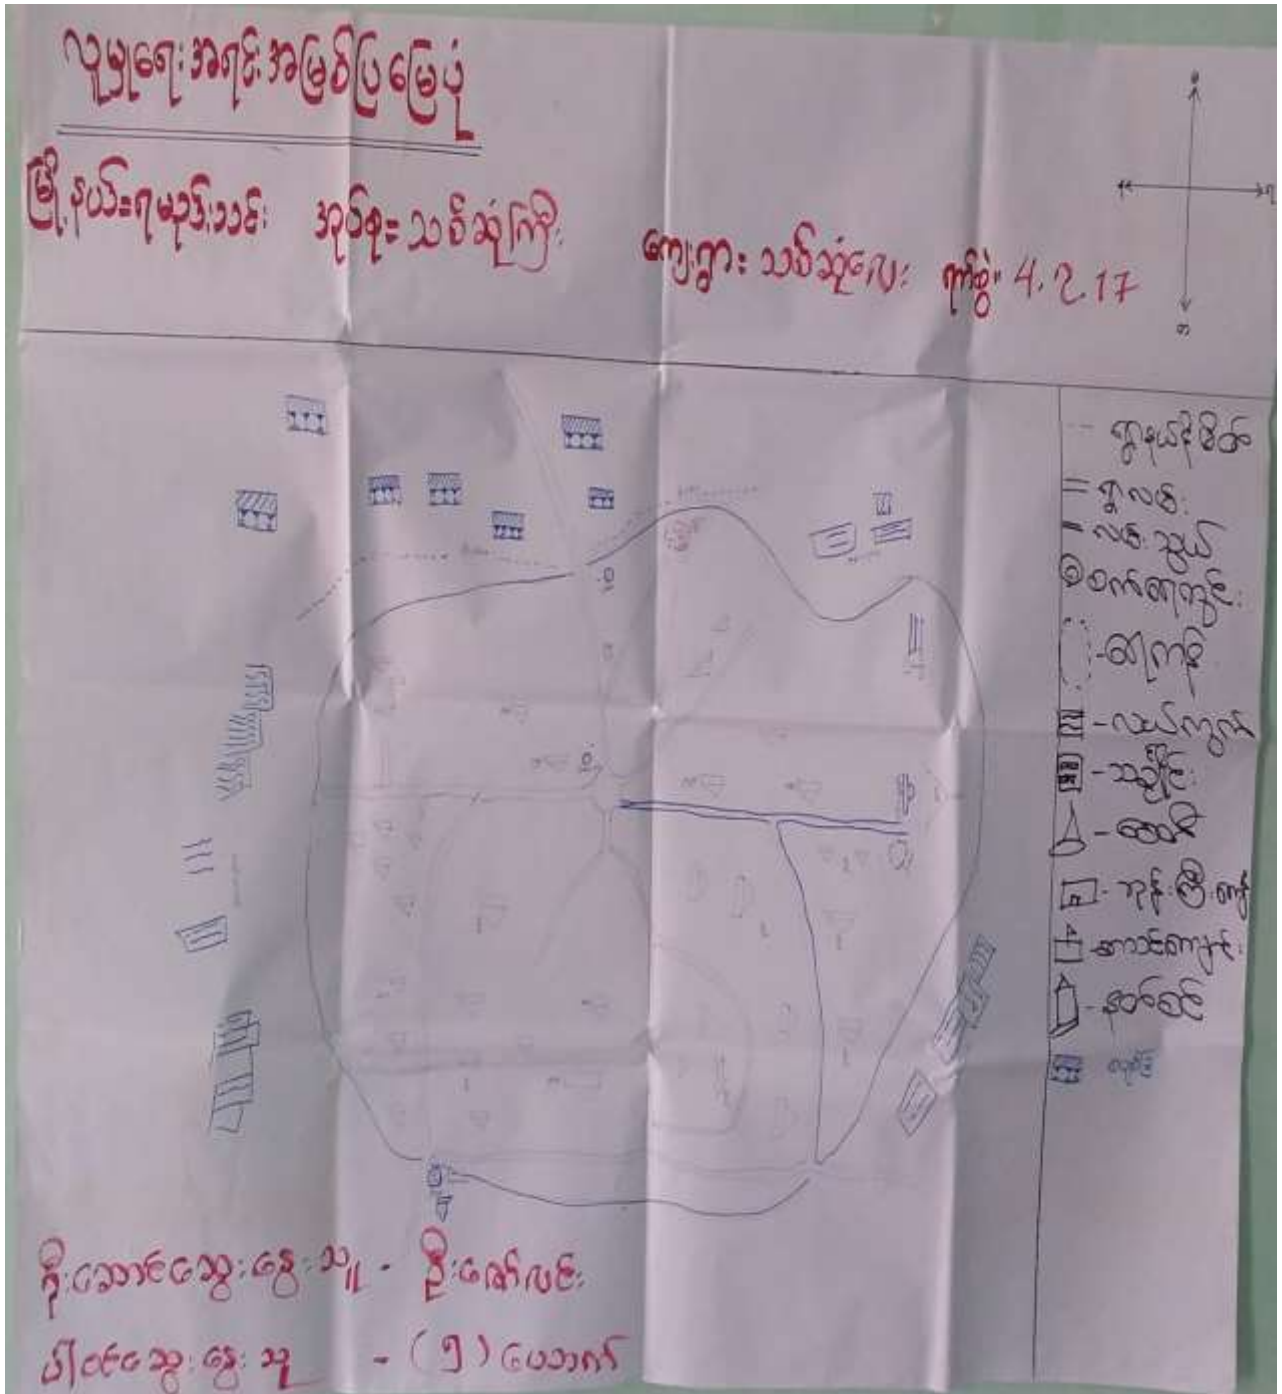 လူမှုရေးအရင်းအမြစ်ပြမြေပုံ
မြို့နယ်=ရမည်းသင်း အုပ်စု=သစ်ဆုံကြီး ကျေးရွား သစ်ဆုံလေး ရက်စွဲ။ 4.2.17
ရွာနယ်နိမိတ်
= ရွာလမ်း
= လမ်းသွယ်
စက်ရေတွင်း
-ရေကန်
- လယ်ကွက်
- သင်္ချိုင်း
- စေတီ
- ဘုန်းကြီးကျောင်း
- စာသင်ကျောင်း
- နတ်စင်
ဦးဆောင်ဆွေးနွေးသူ - ဦးဇော်လင်း
ပါဝင်ဆွေးနွေးသူ - (၅) ယောက်